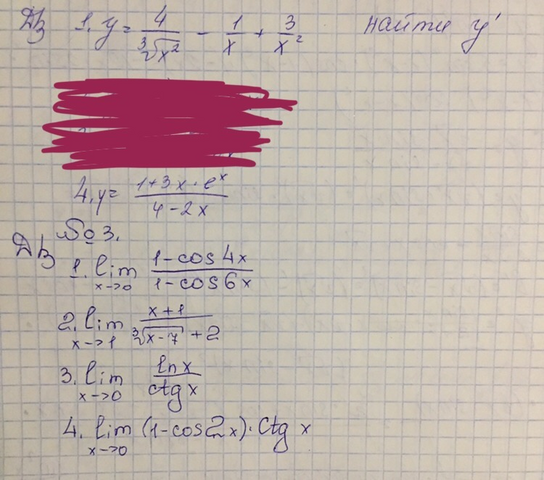 ДЗ 1. y = 4/∛x² - 1/x + 3/x² найти y'
4. y = (1+3x·eˣ)/(4-2x)
№3.
ДЗ
1. lim x→0 (1-cos4x)/(1-cos6x)
2. lim x→1 (x+1)/(∛(x-7)+2)
3. lim x→0 lnx/ctgx
4. lim x→0 (1-cos2x)·Ctg x